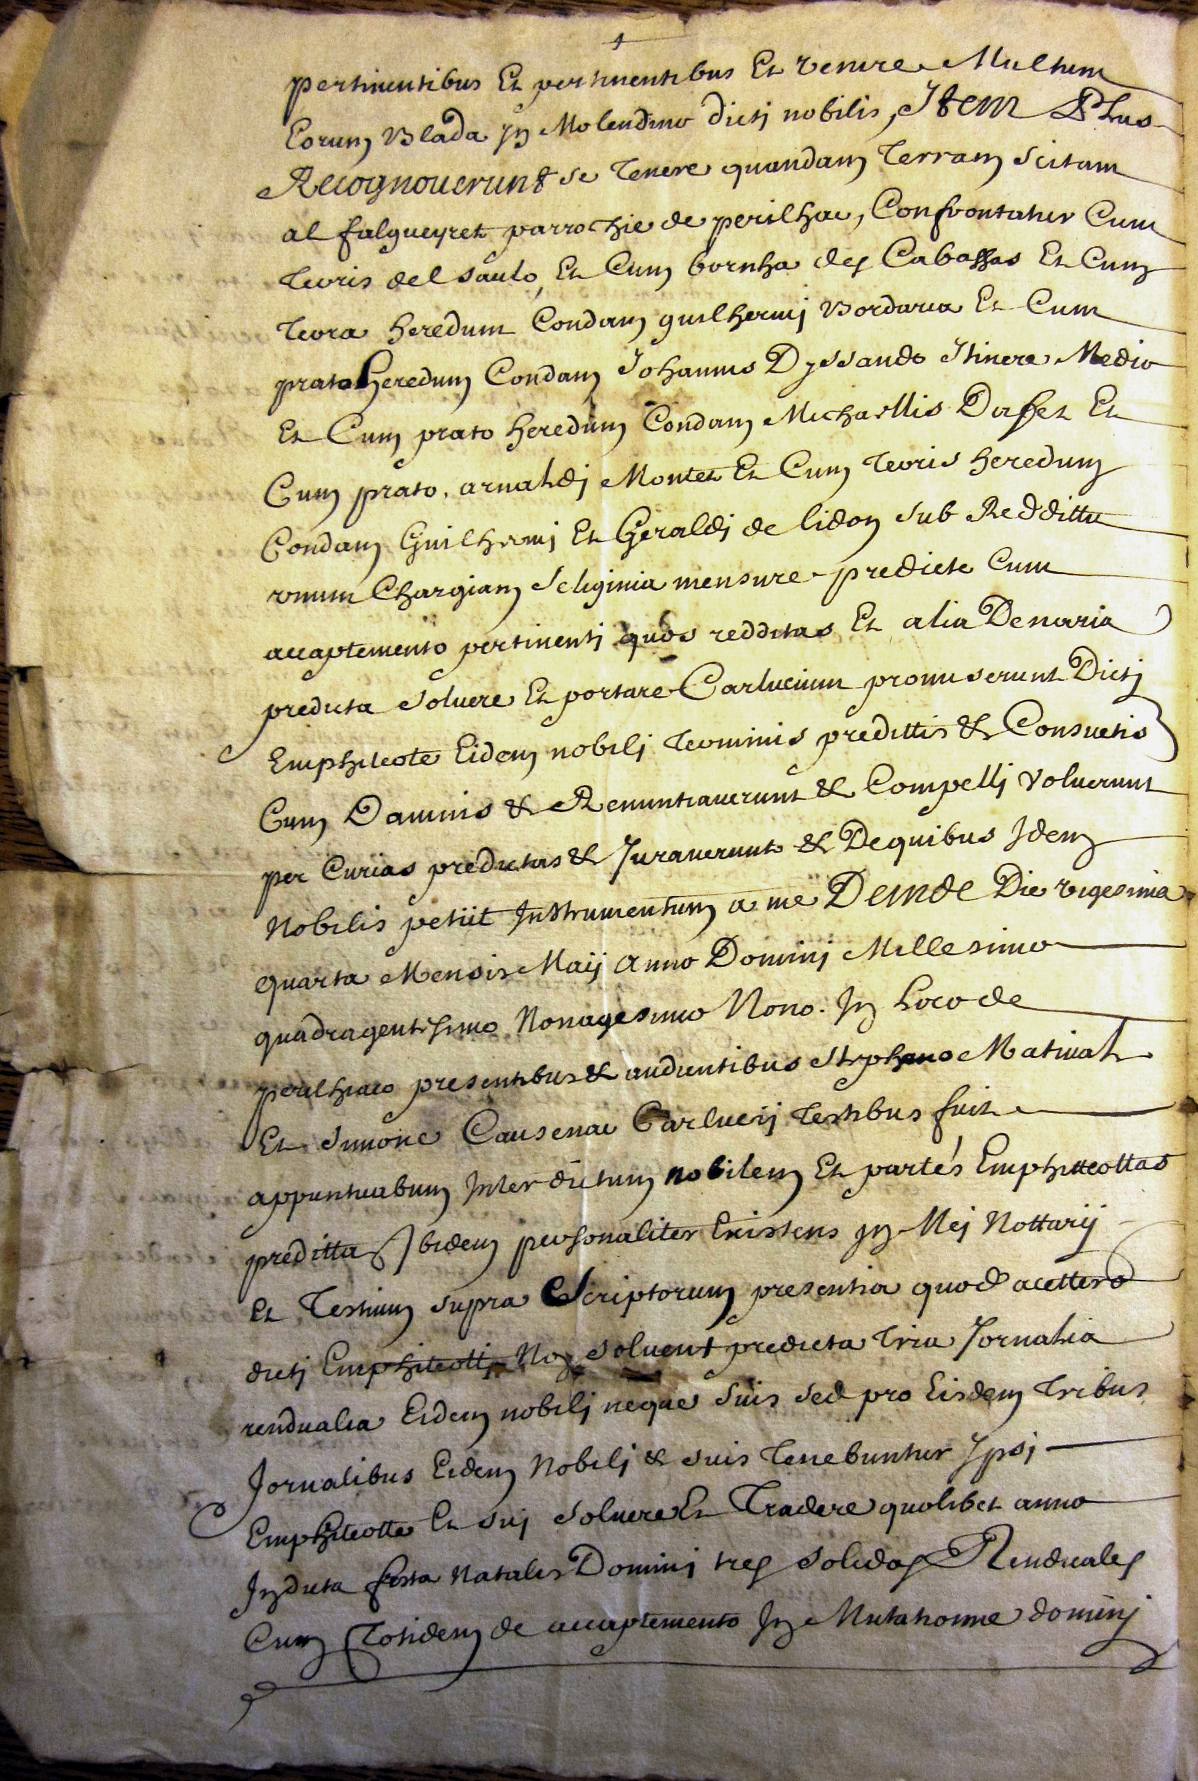 pertinentibus Et pertinentibus Et venire Multum
Eorum Blada Jn Molendino dictj nobilis, Item Plus
Recognouerunt se Tenere quandam Terram scitam
al falgueyret parrochie de perilhac, Confrontatur Cum
Terris del saulo, Et Cum bornha des Cabassas Et Cum
Terra heredum Condam guilhermj Bordaria Et Cum
prato heredum Condam Johannis Dyssando Itinere Medio
Et Cum prato heredum Condam Michaellis Et
Cum prato, arnaldj Montet Et Cum Terris heredum
Condam Guilhermj Et Geraldj de lidon sub Reddittu
vnum Chargiam Seliginia mensure predicte Cum
accaptemento pertinentj quos redditas Et alia Denaria
predicta soluere Et portare Carlucium promiserunt Dictj
Emphiteote Eidem nobilj Terminis predittis & Consuetis
Cum Damnis & Renuntiauerunt & Compellj voluerunt
per Curias predictas & Juraverunt & De quibus Jdem
Nobilis petiit Instrumentum a me Deinde Die vigesima
quarta Mensis Maij anno Dominj Millesimo
quadragentisimo Nonagesimo Nono. Jn Loco de
perilhiaco presentibus & audientibus Stephano Matinal
Et Simone Causenac Carlucij Testibus fuit
appuntuabum Inter dictum nobilem Et partes Emphiteottas
preditta Ibidem personaliter Existens Jn Mej Nottarij
Et Testium supra Scriptorum presentia quod acettero
dictj Emphiteotj Non soluent predicta Tria Jornalia
rendualia Eidem nobilj neque suis sed pro Eisdem Tribus
Jornalibus Eidem Nobilj & suis Tenebuntur Jpsj
Emphiteotte Et suj soluere Et Tradere quolibet anno
Jndicta festa Natalis Dominj tres solidos Renduales
Cum Totidem de accaptemento Jn Mutatione dominj